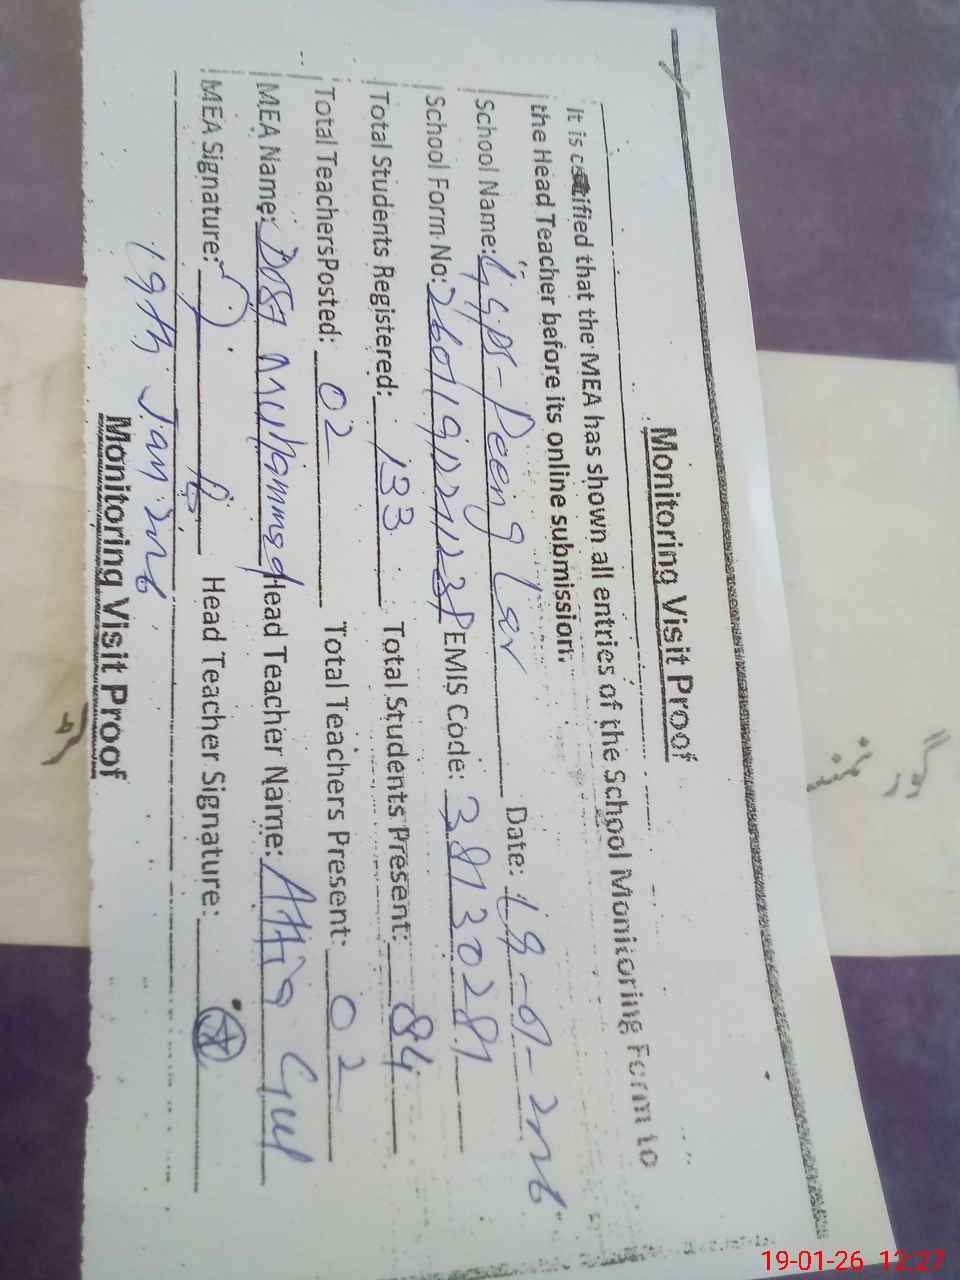 Monitoring Visit Proof
It is certified that the MEA has shown all entries of the School Monitoring Form to
the Head Teacher before its online submission.
School Name: GGPS- Date: 19-01-2026
School Form No: EMIS Code:
Total Students Registered: 133 Total Students Present: 84
Total TeachersPosted: 02 Total Teachers Present: 02
MEA Name: Dost Muhammad Head Teacher Name: Attia Gul
MEA Signature: Head Teacher Signature:
19th Jan 2026
Monitoring Visit Proof
گورنمنٹ
19-01-26 12:27